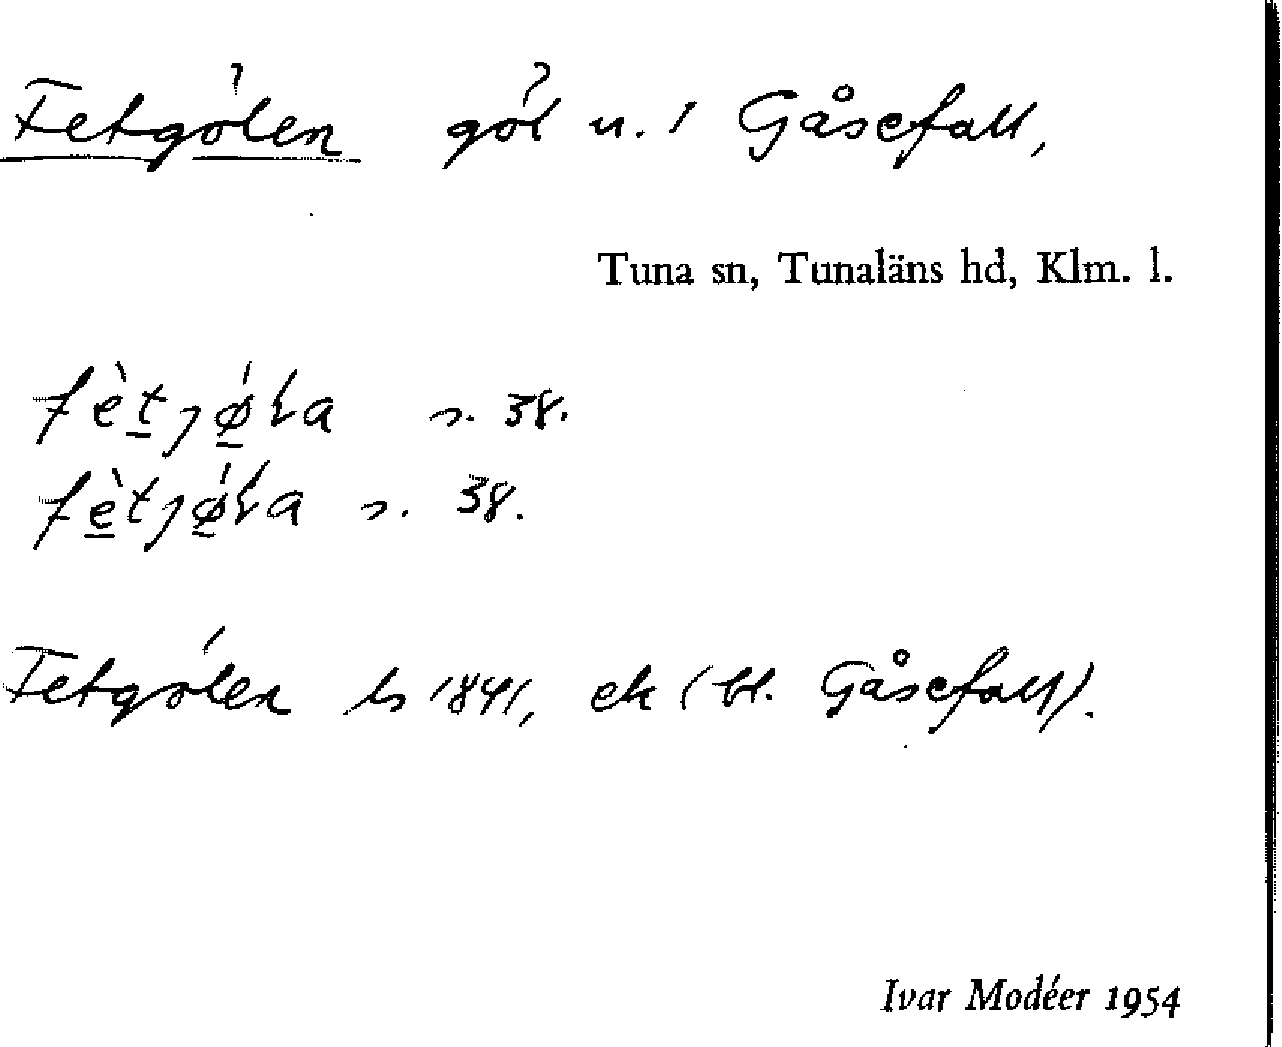 Fetgölen göl u. 1 Gåsefall,
Tuna sn, Tunaläns hd, Klm. l.
38.
38.
Fetgölen ls 1841, ek (bl. Gåsefall).
Ivar Modéer 1954